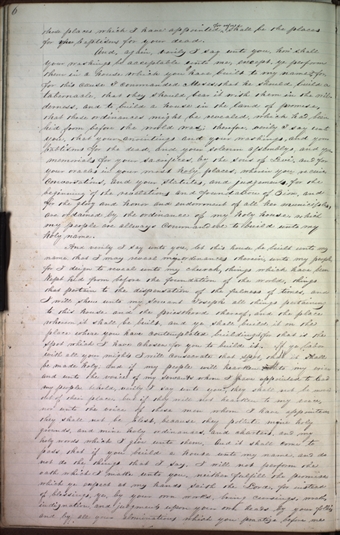 6
those places, which I have appointed, for refuge, shall be the places
for your baptisms for your dead.
And, again, verily I say unto you, how shall
your washings be acceptable unto me, except ye perform
them in a house which you have built to my name? for
for this cause I commanded Moses, that he should build a
tabernacle, that they should bear it with them in the wil-
derness, and to build a house in the land of promise,
that those ordinances might be revealed, which had been
hid from before the world was; therefore, verily I say unto
you, that your anointings and your washings, and your
baptisms for the dead, and your solemn assemblys, and your
memorials for your sacrifices, by the sons of Levi, and for
your oracles in your most holy places, wherein you receive
conversations, and your statutes, and judgements, for the
beginning of the revelations and foundation of Zion, and
for the glory and honor and endowment of all her municipals,
are ordained by the ordinance of my holy house which
my people are allways commanded to build unto my
holy name.
And verily I say unto you, let this house be built unto my
name that I may reveal mine ordinances therein, unto my people
for I deign to reveal unto my church, things which have been
kept hid from before the foundation of the world, things
that pertain to the dispensation of the fulness of times; and
I will show unto my servant Joseph all things pertaining
to this house and the priesthood thereof; and the place
whereon it shall be built, and ye shall build it on the
place where you have contemplated building it, for that is the
spot which I have chosen for you to build it; If ye labor
with all your might I will consecrate that spot, that it shall
be made holy; and if my people will hearken unto my voice
and unto the voice of my servants whom I have appointed to lead
my people behold, verily I say unto you, they shall not be moved
out of their place; but if they will not hearken to my voice,
nor unto the voice of these men whom I have appointed
they shall not be blest, because they pollute mine holy
grounds, and mine holy ordinances, and charters, and my
holy words which I give unto them. And it shall come to
pass that if you build a house unto my name and do
not do the things that I say, I will not perform the
oath which I make unto you, neither fulfill the promises
which ye expect at my hands saith the Lord; for instead
of blessings, ye, by your own works, bring cursings, wrath,
indignation and judgements upon your own heads by your follies
and by all your abominations which you practise before me